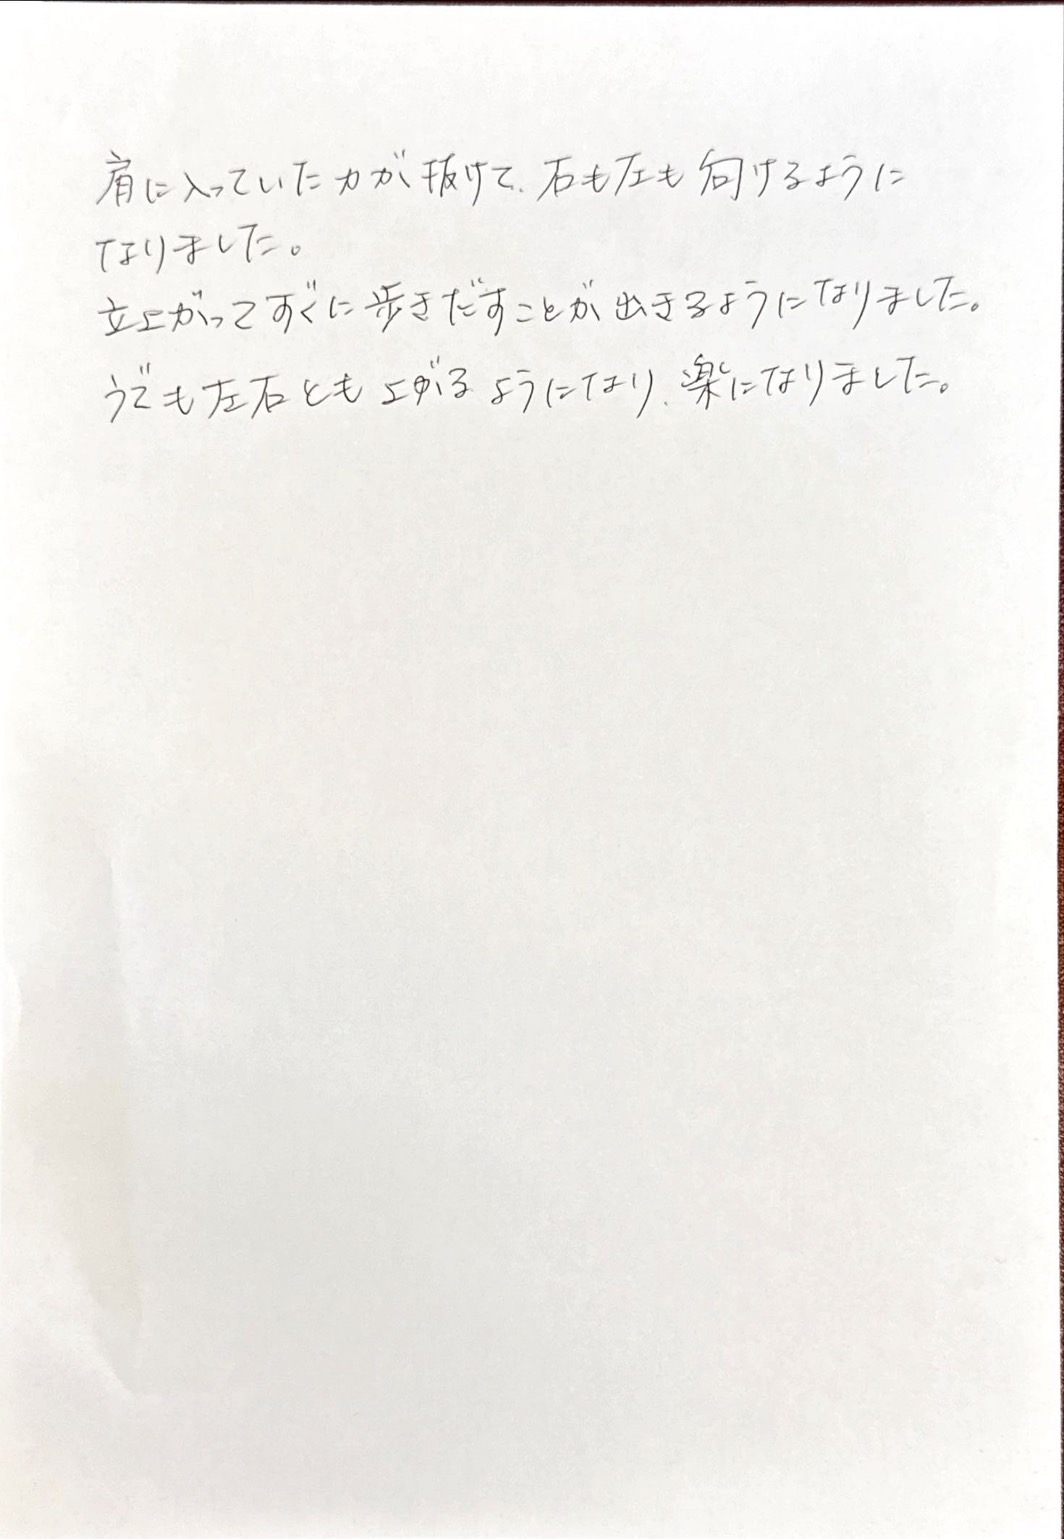 肩に入っていた力が抜けて、右も左も向けるように
なりました。
立上がってすぐに歩きだすことが出きるようになりました。
うでも左右とも上がるようになり、楽になりました。